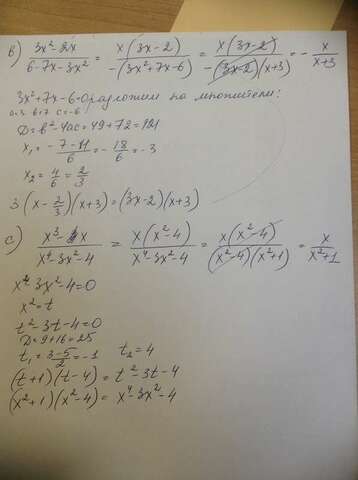 в) (3x² - 2x)/(6-7x-3x²) = x(3x-2)/(-(3x²+7x-6)) = x(3x-2)/(-(3x-2)(x+3)) = - x/(x+3)
3x²+7x-6=0 разложим на множители:
a=3 b=7 c=-6
D=b²-4ac=49+72=121
x₁= (-7-11)/6 = -18/6 = -3
x₂ = 4/6 = 2/3
3(x-2/3)(x+3)=(3x-2)(x+3)
c) (x³-4x)/(x⁴-3x²-4) = x(x²-4)/(x⁴-3x²-4) = x(x²-4)/((x²-4)(x²+1)) = x/(x²+1)
x⁴-3x²-4=0
x²=t
t²-3t-4=0
D=9+16=25
t₁=(3-5)/2=-1 t₂=4
(t+1)(t-4)=t²-3t-4
(x²+1)(x²-4)=x⁴-3x²-4